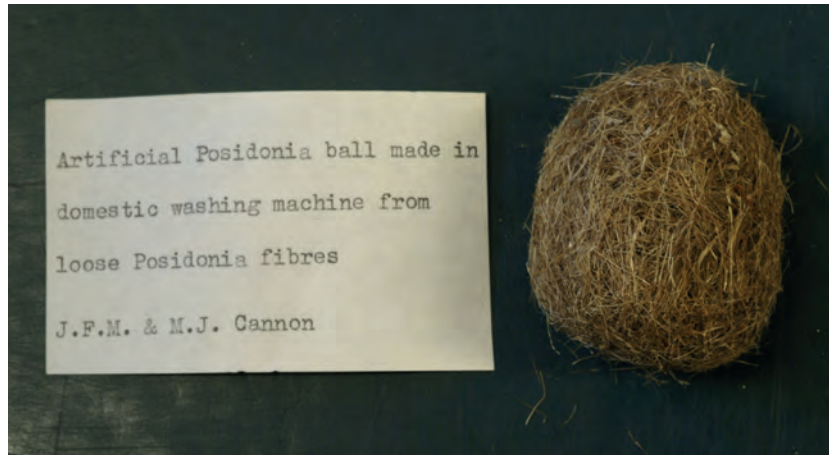 Artificial Posidonia ball made in
domestic washing machine from
loose Posidonia fibres
J.F.M. & M.J. Cannon